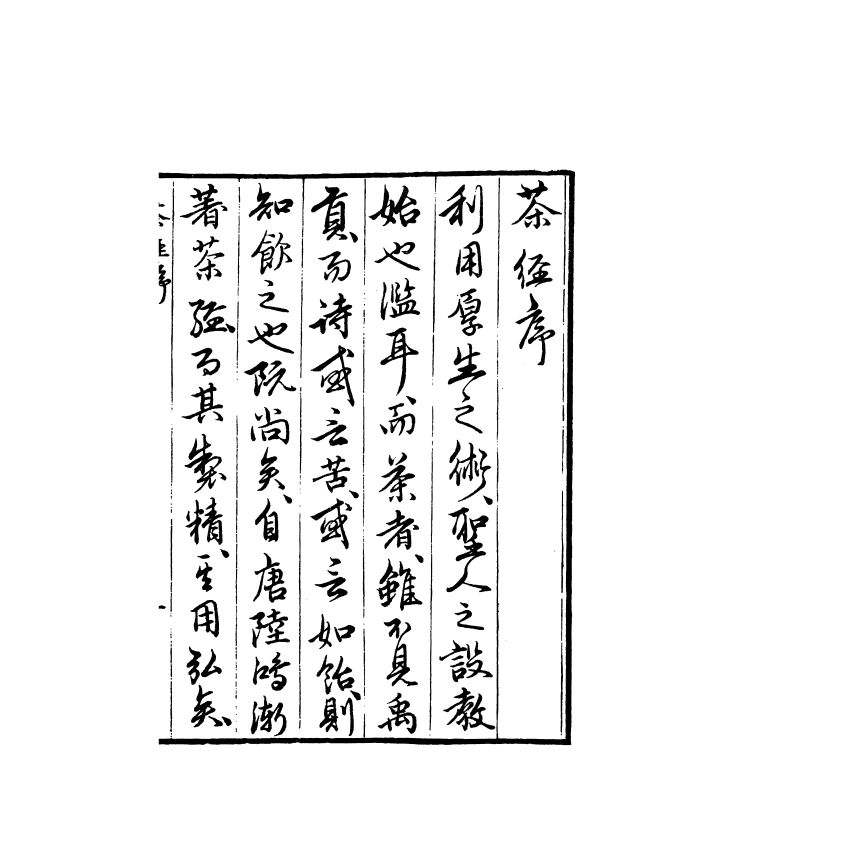 茶經序
利用厚生之術、聖人之設教
始也濫耳、而茶者、雖不見禹
貢、而詩或云苦、或言如飴、則
知飲之也既尚矣、自唐陸鴻漸
著茶經、而其製精、其用弘矣、
茶經序
一